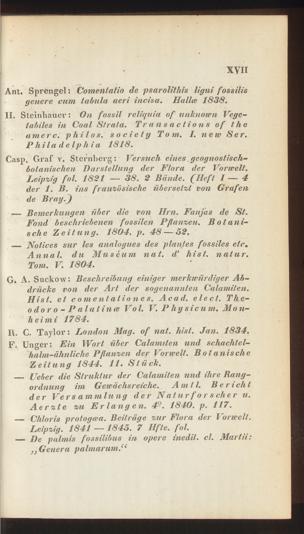 XVII
Ant. Sprengel: Comentatio de psarolithis ligni fossilis
genere cum tabula aeri incisa. Hallæ 1838.
H. Steinhauer: On fossil reliquia of unknown Vege-
tables in Coal Strata. Transactions of the
amerc. philos. society Tom. I. new Ser.
Philadelphia 1818.
Casp. Graf v. Sternberg: Versuch eines geognostisch-
botanischen Darstellung der Flora der Vorwelt.
Leipzig fol. 1821 — 38. 2 Bände. (Heft 1 — 4
der 1. B. ins französische übersetzt von Grafen
de Bray.)
— Bemerkungen über die von Hrn. Faujas de St.
Fond beschriebenen fossilen Pflanzen. Botani-
sche Zeitung. 1804. p. 48 — 52.
— Notices sur les analogues des plantes fossiles etc.
Annal. du Muséum nat. d' hist. natur.
Tom. V. 1804.
G. A. Suckow: Beschreibung einiger merkwürdiger Ab-
drücke von der Art der sogenannten Calamiten.
Hist. et comentationes. Acad. elect. The-
odoro-Palatinæ Vol. V. Physicum. Mon-
heimi 1784.
R. C. Taylor: London Mag. of nat. hist. Jan. 1834.
F. Unger: Ein Wort über Calamiten und schachtel-
halm-ähnliche Pflanzen der Vorwelt. Botanische
Zeitung 1844. 11. Stück.
— Ueber die Struktur der Calamiten und ihre Rang-
ordnung im Gewächsreiche. Amtl. Bericht
der Versammlung der Naturforscher u.
Aerzte zu Erlangen. 4º. 1840. p. 117.
— Chloris protogæa. Beiträge zur Flora der Vorwelt.
Leipzig. 1841 — 1845. 7 Hfte. fol.
— De palmis fossilibus in opere inedit. cl. Martii:
„Genera palmarum.“